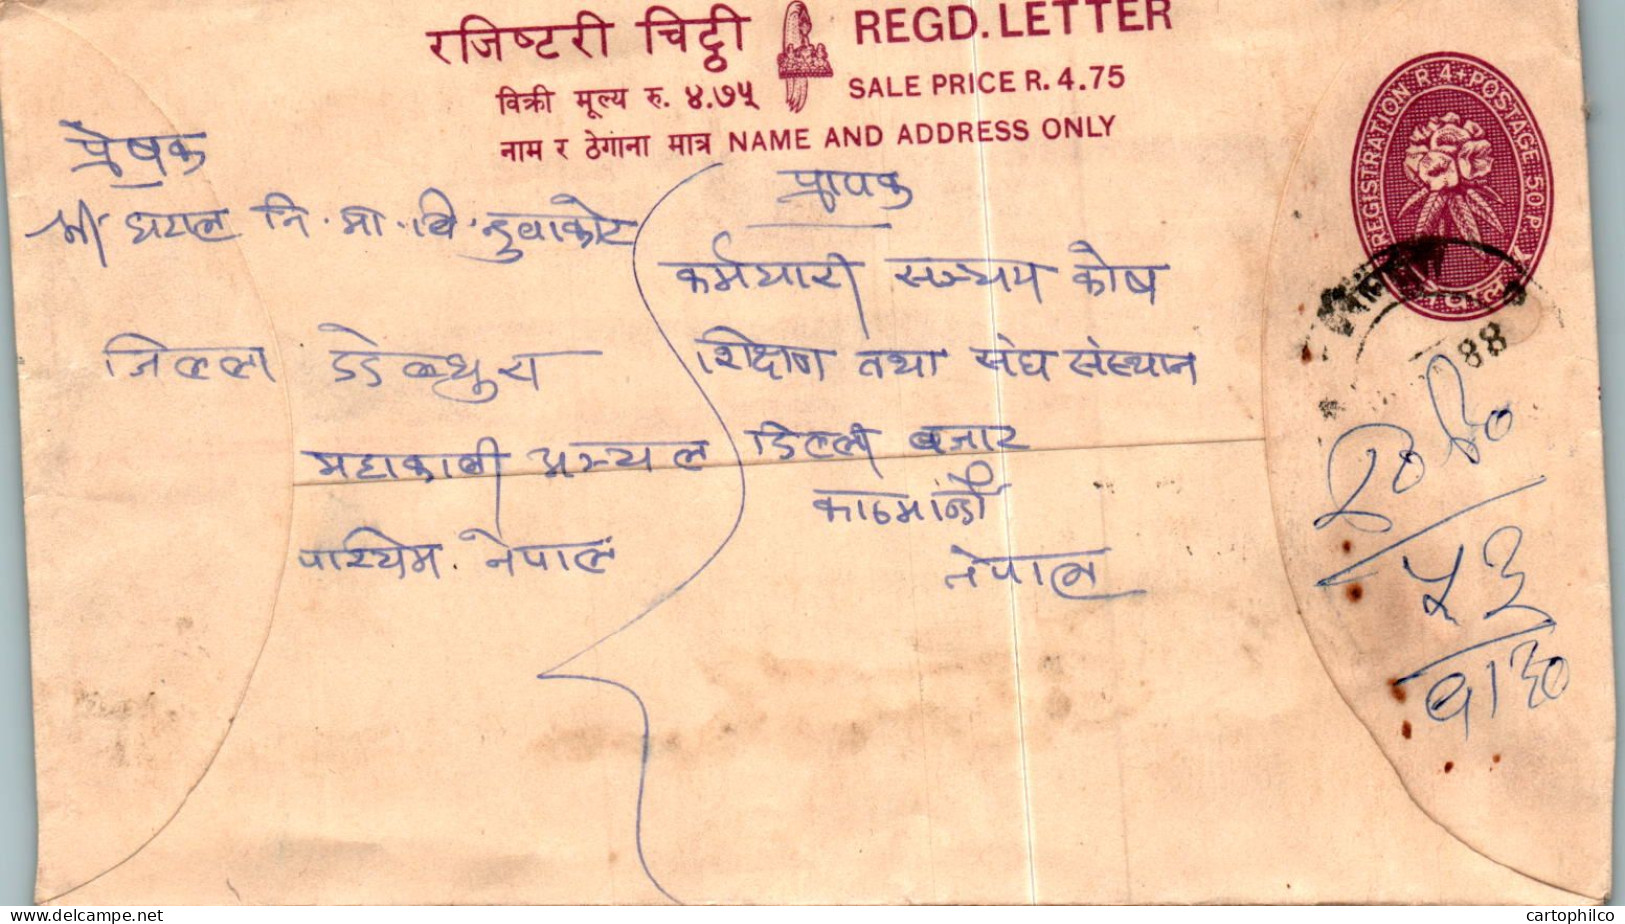 रजिष्टरी चिट्ठी REGD. LETTER
विक्री मूल्य रु. ४.७५ SALE PRICE R. 4.75
नाम र ठेगाना मात्र NAME AND ADDRESS ONLY
REGISTRATION R. 4 + POSTAGE 50 P.
प्रेषक
श्री घटाल नि. मा. वि.
जिल्ला डडेल्धुरा
महाकाली अञ्चल
पश्चिम. नेपाल
प्रापक
कर्मचारी सञ्चय कोष
शिक्षण तथा संघ संस्थान
डिल्ली बजार
काठमाण्डौ
नेपाल
88
५३
delcampe.net
cartophilco